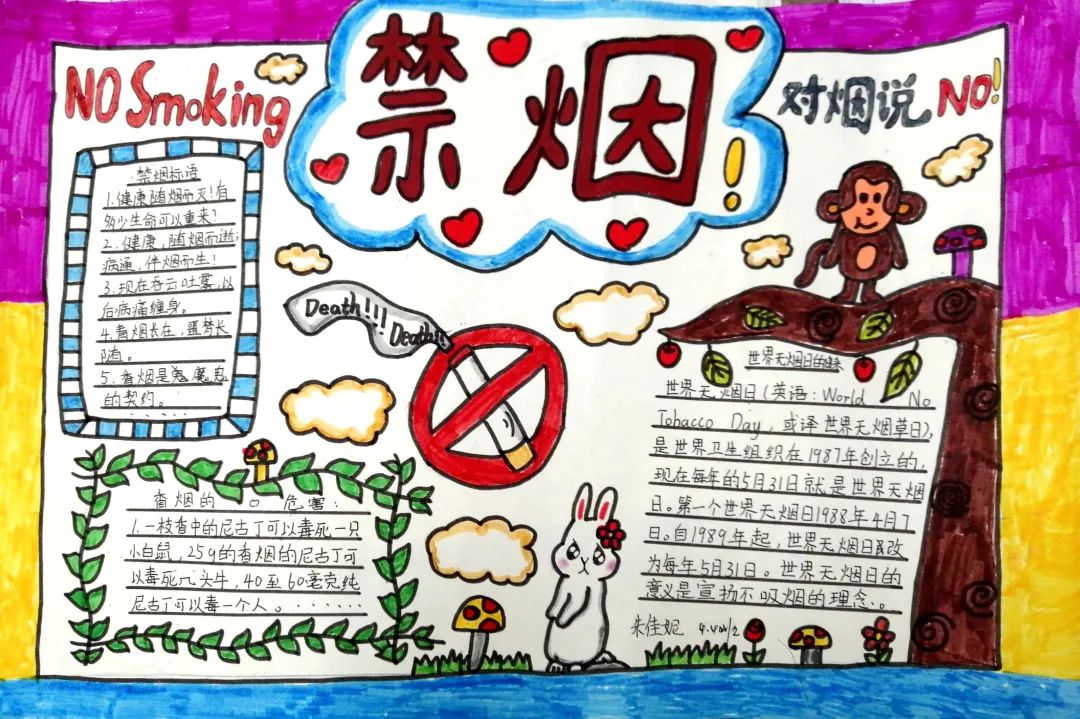 NO Smoking
禁烟!
对烟说 NO!
禁烟标语
1.健康随烟而灭!有
多少生命可以重来?
2.健康,随烟而逝;
病通,伴烟而生!
3.现在吞云吐雾,以
后病痛缠身。
4.青烟长在,噩梦长
随。
5.香烟是鬼魔鬼
的契约。......
Death!!! Death!!
世界无烟日的
世界无烟日(英语:World No
Tobacco Day,或译世界无烟草日),
是世界卫生组织在1987年创立的,
现在每年的5月31日就是世界无烟
日。第一个世界无烟日1988年4月7
日。自1989年起,世界无烟日改
为每年5月31日。世界无烟日的
意义是宣扬不吸烟的理念。
香烟的 危害:
1.一枝香中的尼古丁可以毒死一只
小白鼠,25g的香烟的尼古丁可
以毒死几头牛,40至60毫克纯
尼古丁可以毒一个人。......
朱佳妮